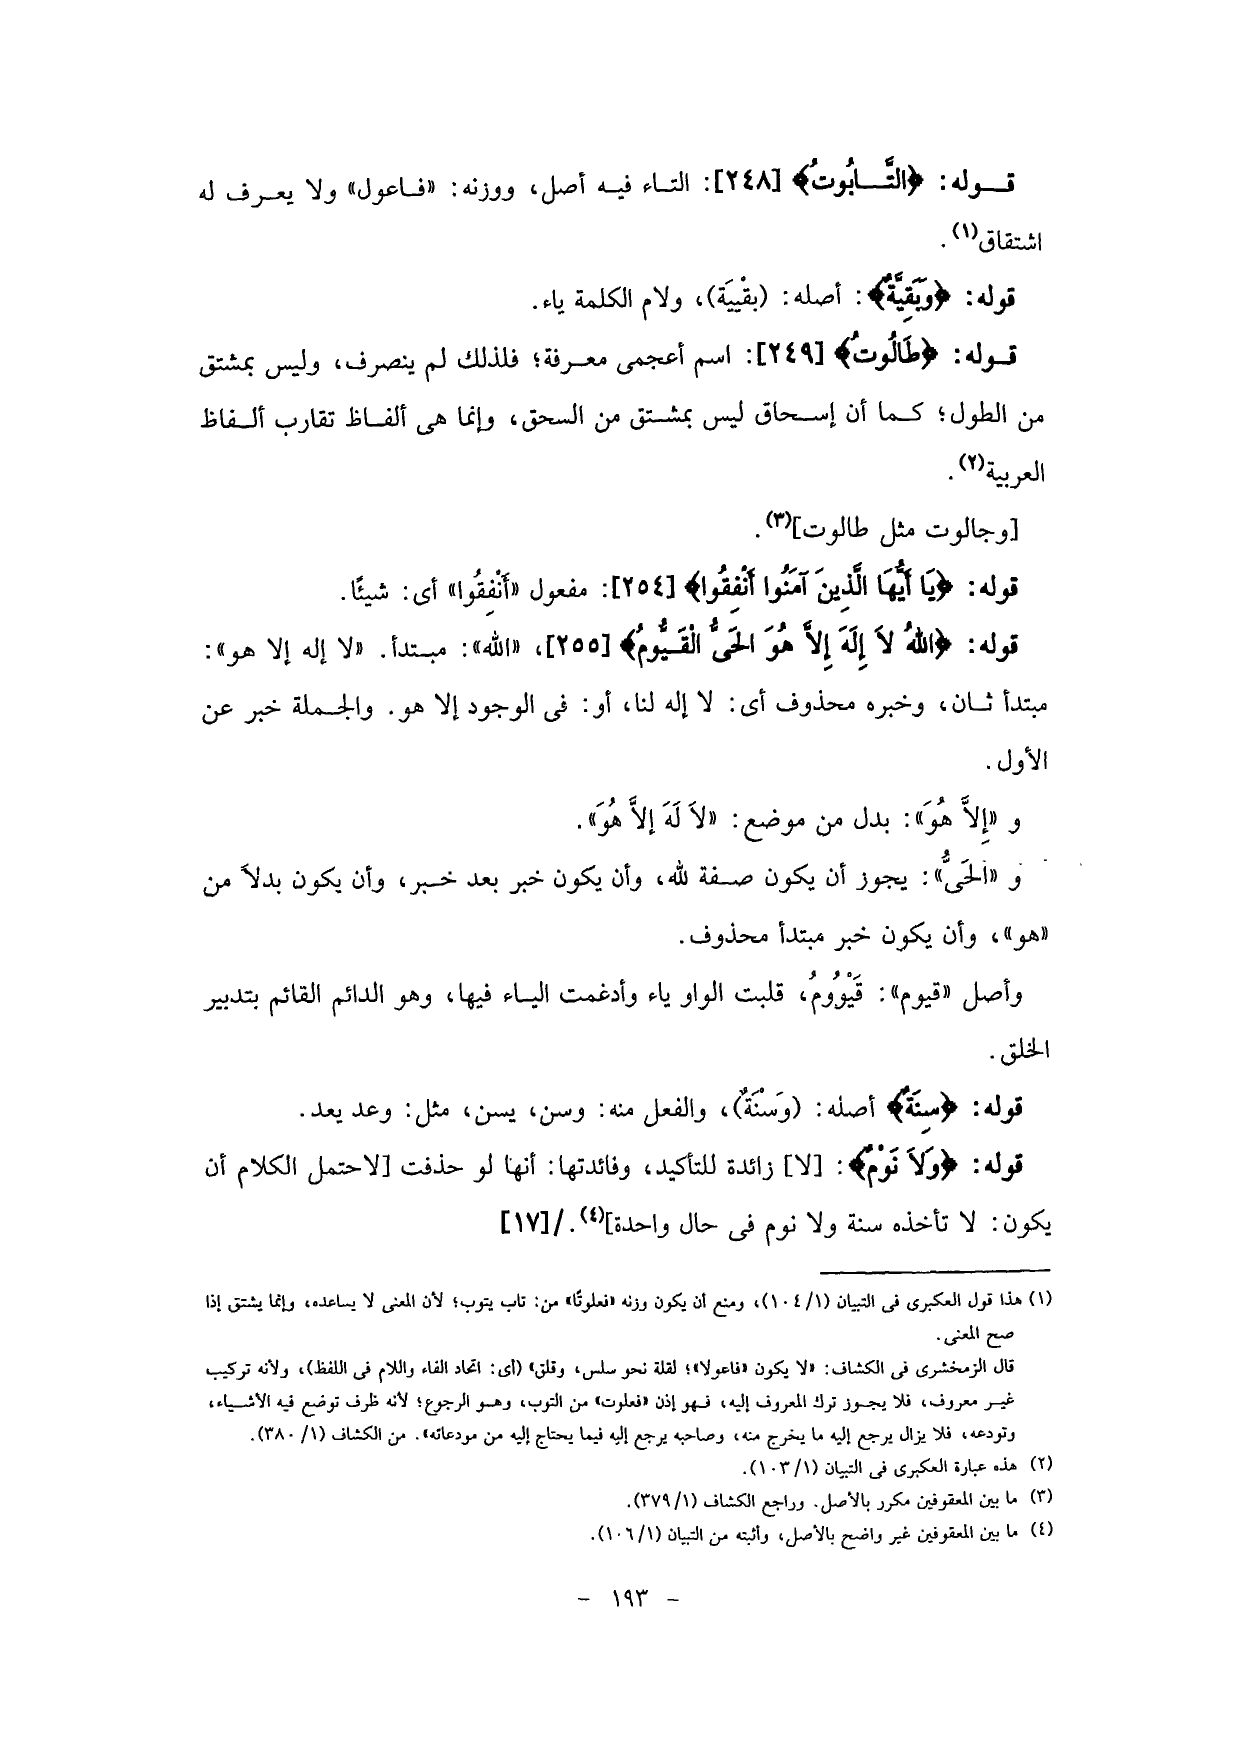 قوله: ﴿التَّابُوتُ﴾ [٢٤٨]: التاء فيه أصل، ووزنه: «فاعول» ولا يعرف له
اشتقاق(١).
قوله: ﴿وَبَقِيَّةٌ﴾: أصله: (بقْيِيَة)، ولام الكلمة ياء.
قوله: ﴿طَالُوتُ﴾ [٢٤٩]: اسم أعجمى معرفة؛ فلذلك لم ينصرف، وليس بمشتق
من الطول؛ كما أن إسحاق ليس بمشتق من السحق، وإنما هى ألفاظ تقارب ألفاظ
العربية(٢).
[وجالوت مثل طالوت](٣).
قوله: ﴿يَا أَيُّهَا الَّذِينَ آمَنُوا أَنْفِقُوا﴾ [٢٥٤]: مفعول «أَنْفِقُوا» أى: شيئًا.
قوله: ﴿اللهُ لاَ إِلَهَ إِلاَّ هُوَ الحَىُّ الْقَيُّومُ﴾ [٢٥٥]، «الله»: مبتدأ. «لا إله إلا هو»:
مبتدأ ثان، وخبره محذوف أى: لا إله لنا، أو: فى الوجود إلا هو. والجملة خبر عن
الأول.
و «إِلاَّ هُوَ»: بدل من موضع: «لاَ لَهَ إلاَّ هُوَ».
و «الحَىُّ»: يجوز أن يكون صفة لله، وأن يكون خبر بعد خبر، وأن يكون بدلاً من
«هو»، وأن يكون خبر مبتدأ محذوف.
وأصل «قيوم»: قَيْوُومُ، قلبت الواو ياء وأدغمت الياء فيها، وهو الدائم القائم بتدبير
الخلق.
قوله: ﴿سِنَةٌ﴾ أصله: (وَسْنَةٌ)، والفعل منه: وسن، يسن، مثل: وعد يعد.
قوله: ﴿وَلاَ نَوْمٌ﴾: [لا] زائدة للتأكيد، وفائدتها: أنها لو حذفت [لاحتمل الكلام أن
يكون: لا تأخذه سنة ولا نوم فى حال واحدة](٤)./[١٧]
(١) هذا قول العكبرى فى التبيان (١/ ١٠٤)، ومنع أن يكون وزنه «فعلوتًا» من: تاب يتوب؛ لأن المعنى لا يساعده، وإنما يشتق إذا
صح المعنى.
قال الزمخشرى فى الكشاف: «لا يكون «فاعولا»؛ لقلة نحو سلس، وقلق» (أى: اتحاد الفاء واللام فى اللفظ)، ولأنه تركيب
غير معروف، فلا يجوز ترك المعروف إليه، فهو إذن «فعلوت» من التوب، وهو الرجوع؛ لأنه ظرف توضع فيه الأشياء،
وتودعه، فلا يزال يرجع إليه ما يخرج منه، وصاحبه يرجع إليه فيما يحتاج إليه من مودعاته». من الكشاف (١/ ٣٨٠).
(٢) هذه عبارة العكبرى فى التبيان (١/ ١٠٣).
(٣) ما بين المعقوفين مكرر بالأصل. وراجع الكشاف (١/ ٣٧٩).
(٤) ما بين المعقوفين غير واضح بالأصل، وأثبته من التبيان (١/ ١٠٦).
- ١٩٣ -